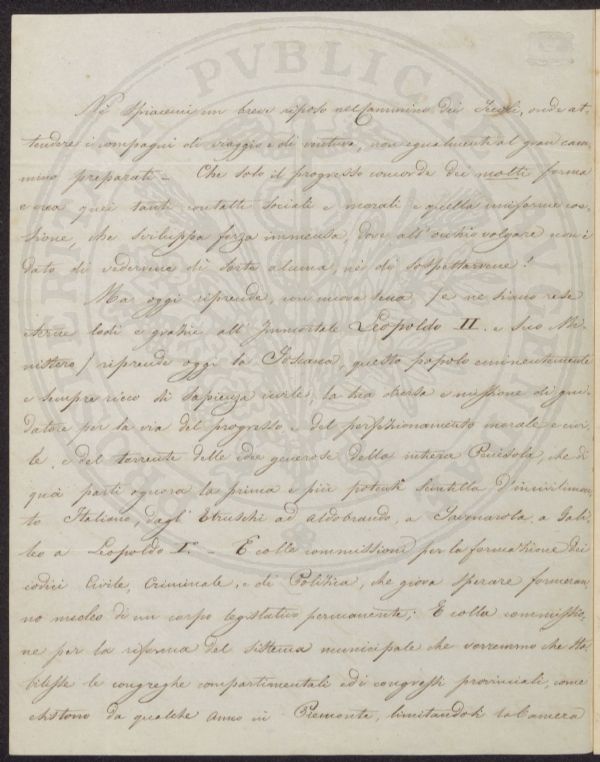 Nè spiacemi un breve riposo nel Cammino dei Secoli, onde at-
tendere i compagni di viaggio e di ventura, non egualmente al gran cam-
mino preparati – Che solo il progresso concorde dei molti forma
e crea quei tanti contatti sociali e morali e quella uniforme coe-
sione, che sviluppa forza immensa, dove all'occhio volgare non è
dato di vederne di sorte alcuna, nè di sospettarne!
Ma oggi riprende, con nuova lena, /e ne siano rese
eterne lodi e grazie all'Immortale Leopoldo II. e Suo Mi-
nistero/ riprende oggi la Toscana, questo popolo eminentemente
e sempre ricco di sapienza civile, la sua corsa e missione di gui-
datore per la via del progresso e del perfezionamento morale e civi-
le, e del torrente delle idee generose della intiera Penisola, che di
quà partì ognora la prima e più potente Scintilla d'incivilimen-
to Italiano, dagl'Etruschi ad Aldobrando, a Savonarola, a Gali-
leo a Leopoldo I.º – E colle commissioni per la formazione dei
codici Civile, Criminale, e di Politica, che giova sperare formeran-
no nucleo di un corpo legislativo permanente; E colla commissio-
ne per la riforma del sistema municipale che vorremmo che sta-
bilisse le congreghe compartimentali ed i congressi provinciali, come
esistono da qualche anno in Piemonte, limitandoli la Camera
PVBLICAE